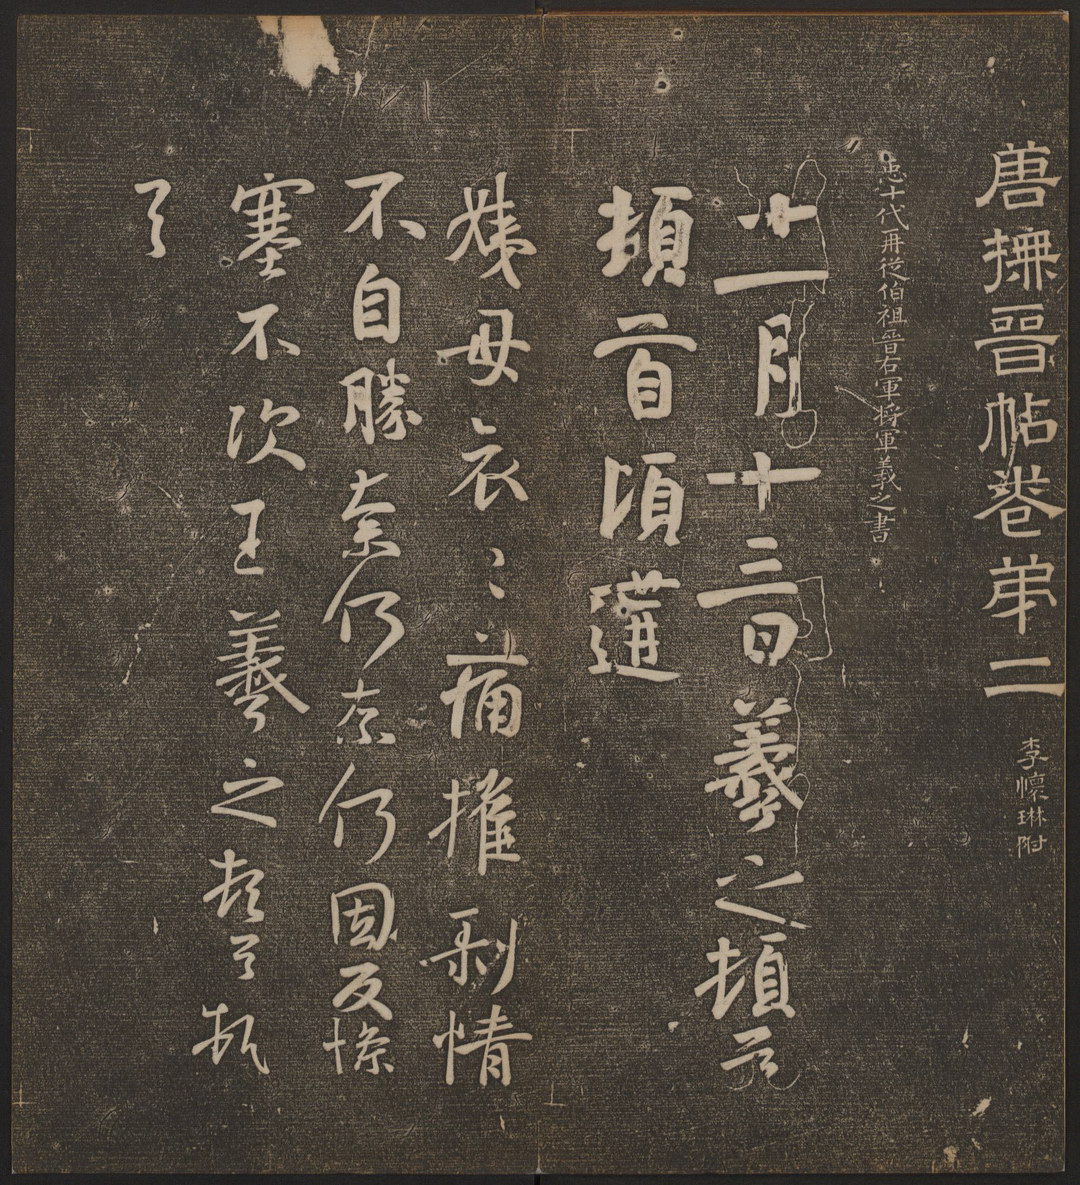 唐撫晉帖卷弟二 李懷琳附
十代再從伯祖晉右軍將軍羲之書
十一月十三日羲之頓首
頓首頃遘
姨母哀〻痛摧剝情
不自勝奈何奈何因反慘
塞不次王羲之頓首頓
首